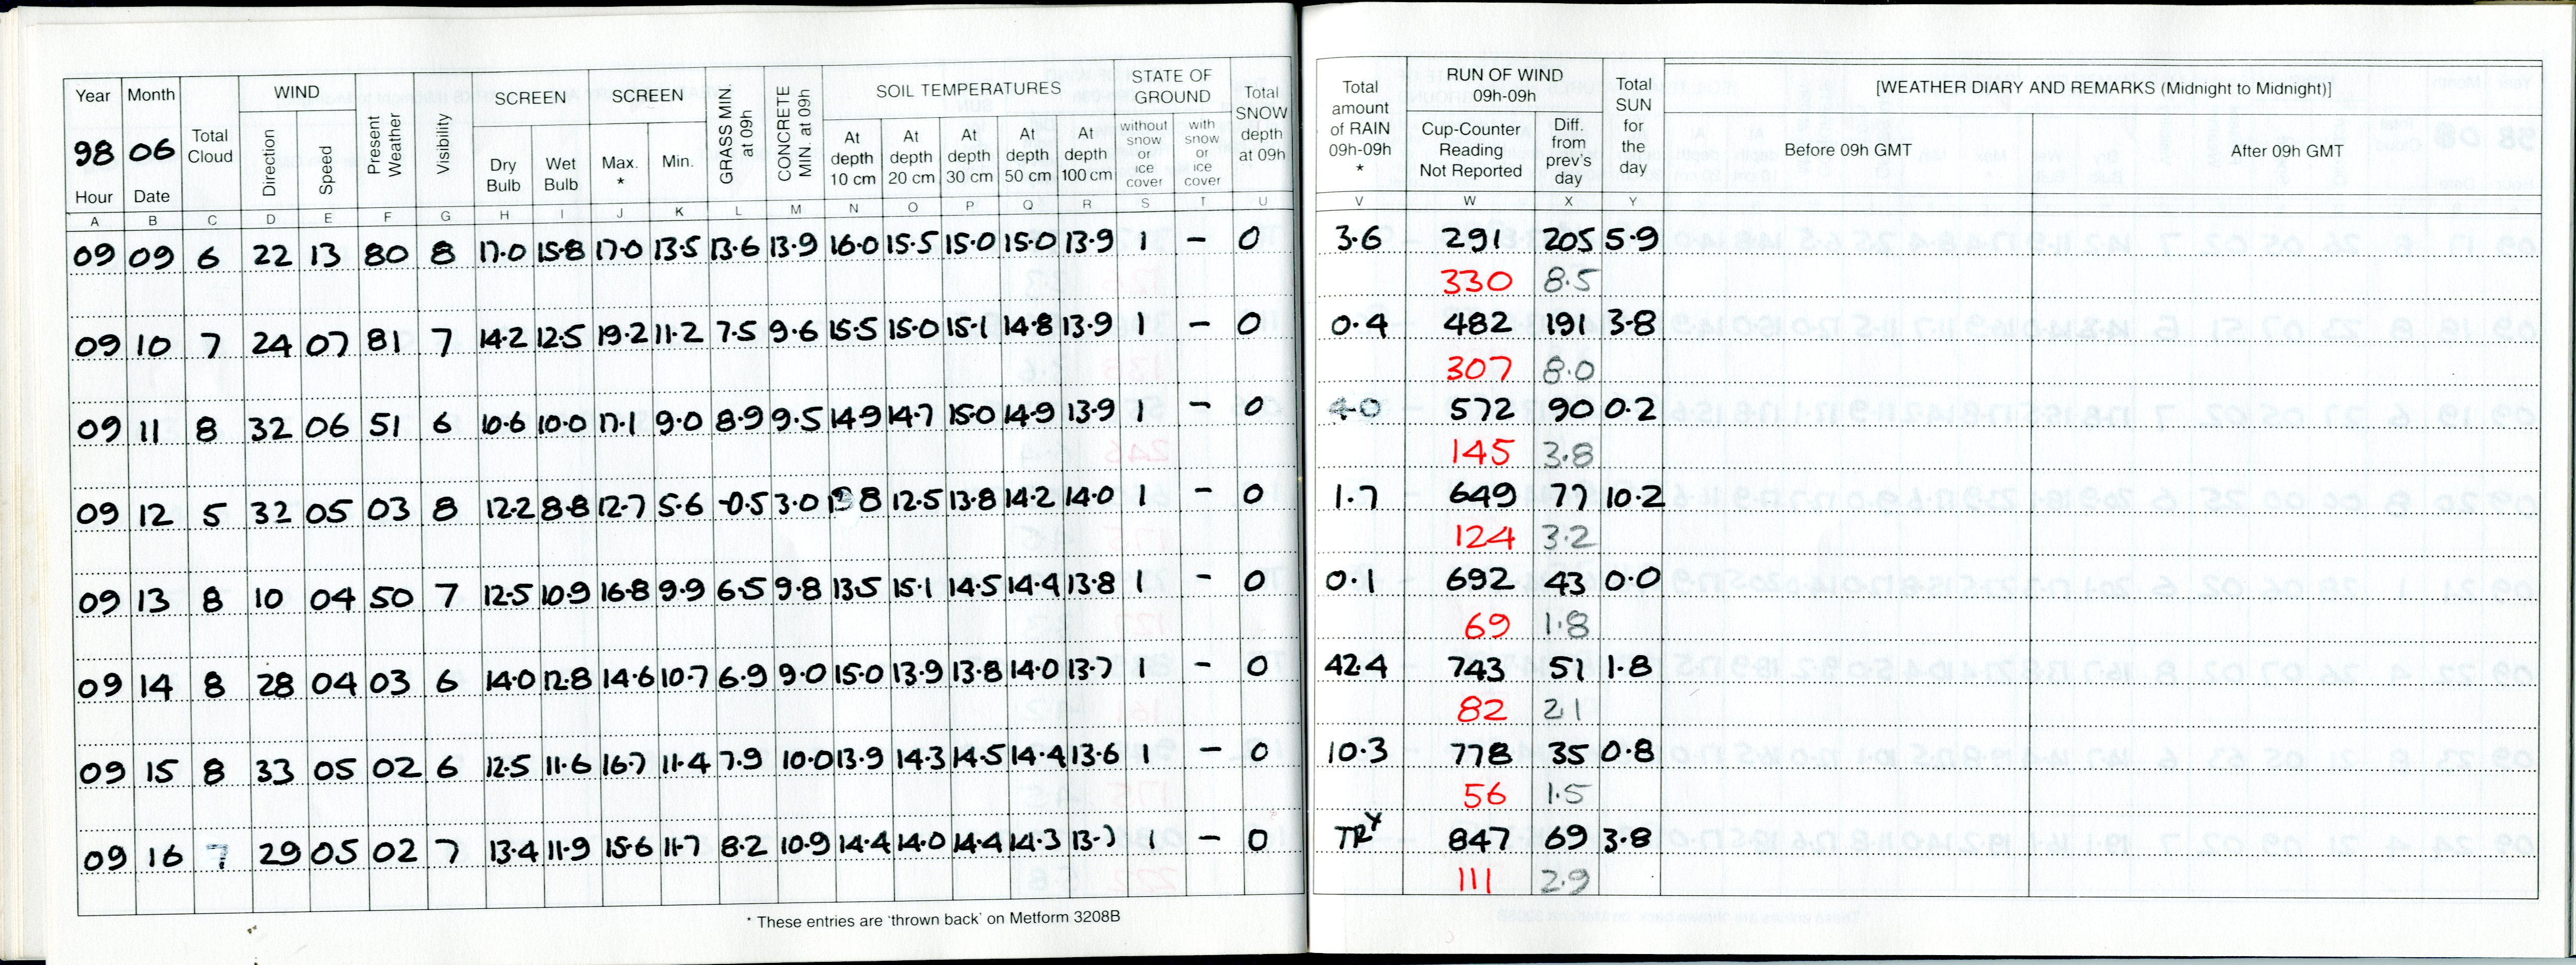 Year Month Total Cloud WIND Present Weather Visibility SCREEN SCREEN GRASS MIN. at 09h CONCRETE MIN. at 09h SOIL TEMPERATURES STATE OF GROUND Total SNOW depth at 09h
98 06 Direction Speed Dry Bulb Wet Bulb Max. * Min. At depth 10 cm At depth 20 cm At depth 30 cm At depth 50 cm At depth 100 cm without snow or ice cover with snow or ice cover
Hour Date
A B C D E F G H I J K L M N O P Q R S T U
Total amount of RAIN 09h-09h * RUN OF WIND 09h-09h Total SUN for the day [WEATHER DIARY AND REMARKS (Midnight to Midnight)]
Cup-Counter Reading Not Reported Diff. from prev's day Before 09h GMT After 09h GMT
V W X Y
09 09 6 22 13 80 8 17.0 15.8 17.0 13.5 13.6 13.9 16.0 15.5 15.0 15.0 13.9 1 – 0 3.6 291 205 5.9
330 8.5
09 10 7 24 07 81 7 14.2 12.5 19.2 11.2 7.5 9.6 15.5 15.0 15.1 14.8 13.9 1 – 0 0.4 482 191 3.8
307 8.0
09 11 8 32 06 51 6 10.6 10.0 17.1 9.0 8.9 9.5 14.9 14.7 15.0 14.9 13.9 1 – 0 4.0 572 90 0.2
145 3.8
09 12 5 32 05 03 8 12.2 8.8 12.7 5.6 -0.5 3.0 12.5 13.8 14.2 14.0 1 – 0 1.7 649 77 10.2
124 3.2
09 13 8 10 04 50 7 12.5 10.9 16.8 9.9 6.5 9.8 13.5 15.1 14.5 14.4 13.8 1 – 0 0.1 692 43 0.0
69 1.8
09 14 8 28 04 03 6 14.0 12.8 14.6 10.7 6.9 9.0 15.0 13.9 13.8 14.0 13.7 1 – 0 42.4 743 51 1.8
82 2.1
09 15 8 33 05 02 6 12.5 11.6 16.7 11.4 7.9 10.0 13.9 14.3 14.5 14.4 13.6 1 – 0 10.3 778 35 0.8
56 1.5
09 16 7 29 05 02 7 13.4 11.9 15.6 11.7 8.2 10.9 14.4 14.0 14.4 14.3 13.7 1 – 0 TR 847 69 3.8
111 2.9
* These entries are 'thrown back' on Metform 3208B